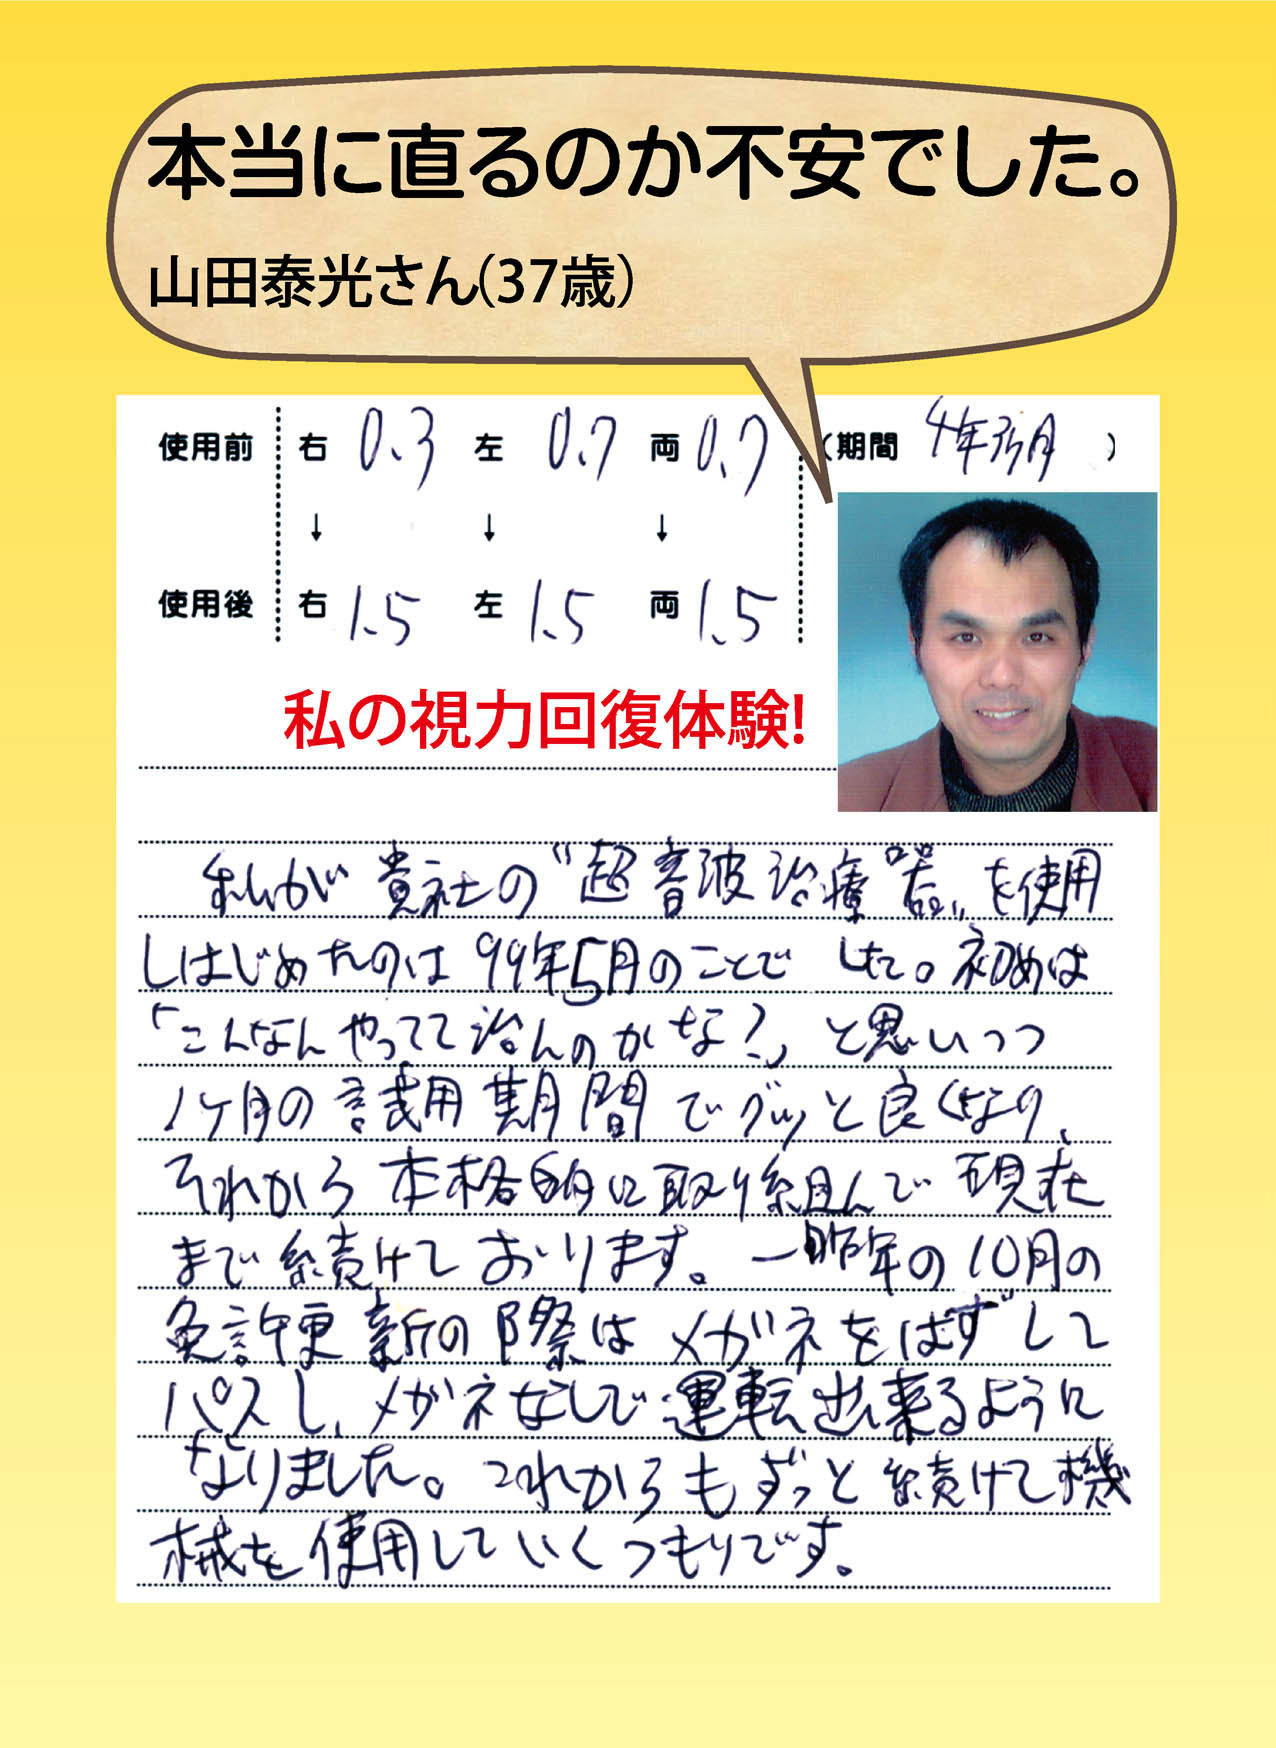 本当に直るのか不安でした。
山田泰光さん(37歳)
使用前 右 0.3 左 0.7 両 0.7 (期間 4年3ヶ月 )
↓ ↓ ↓
使用後 右 1.5 左 1.5 両 1.5
私の視力回復体験!
私が貴社の“超音波治療器”を使用
しはじめたのは99年5月のことでした。初めは
「こんなんやってて治んのかな?」と思いつつ
1ヶ月の試用期間でグッと良くなり、
それから本格的に取り組んで現在
まで続けております。一昨年の10月の
免許更新の際はメガネをはずして
パスし、メガネなしで運転出来るように
なりました。これからもずっと続けて機
械を使用していくつもりです。